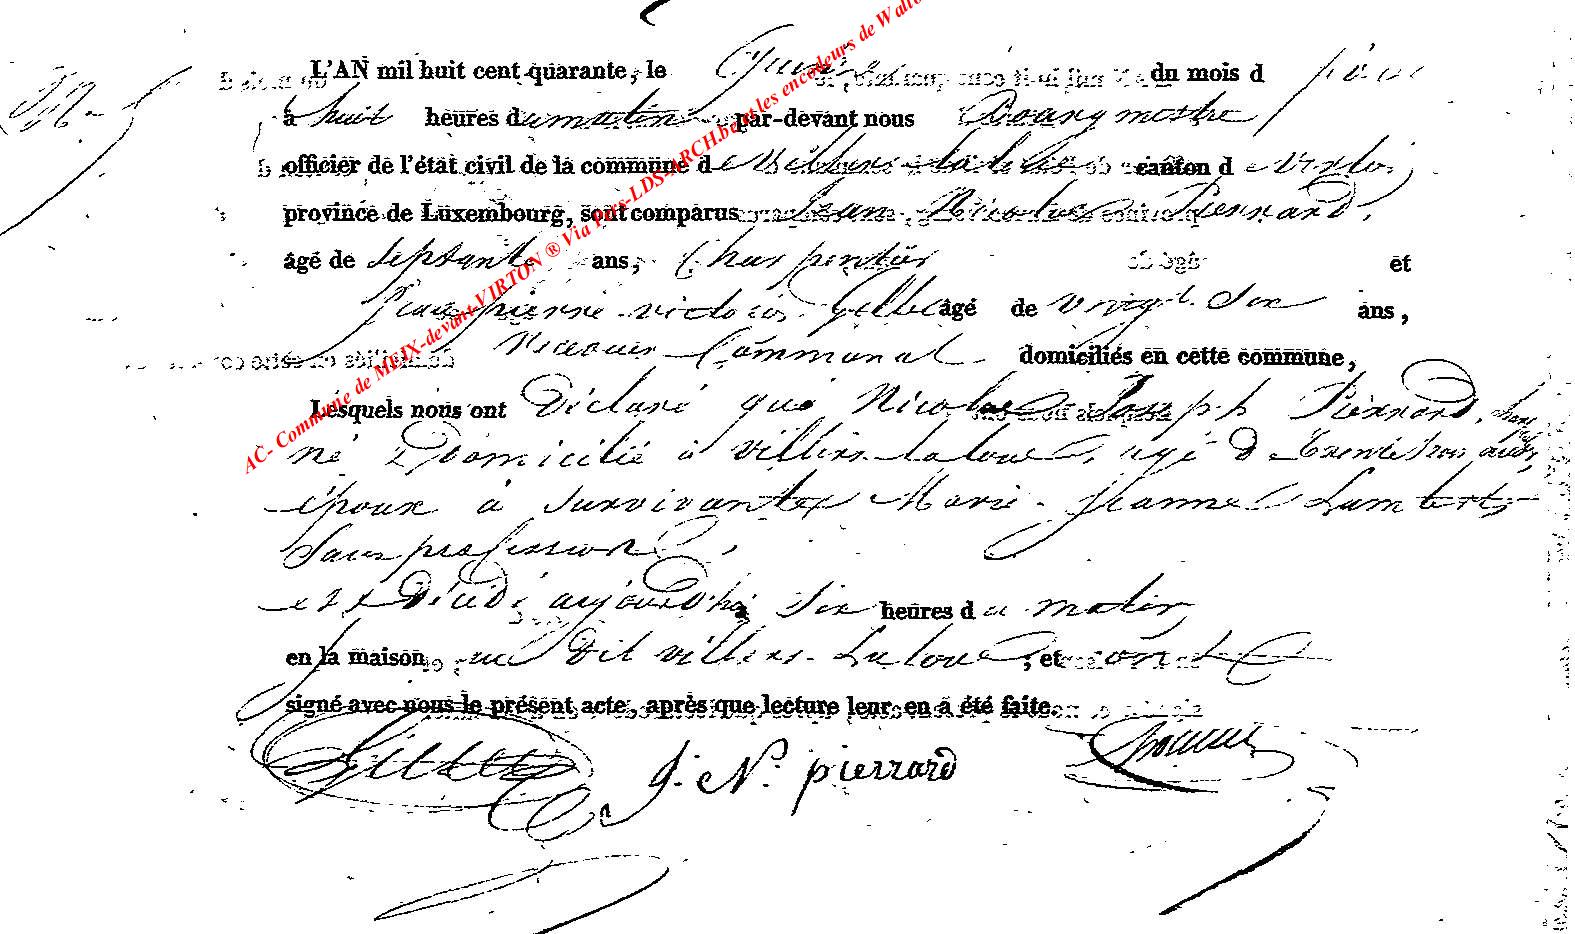 L'AN mil huit cent quarante, le quinze du mois d
à huit heures du matin par-devant nous Bourgmestre
officier de l'état civil de la commune de Villers-la-loue canton de Virton,
province de Luxembourg, sont comparus Jean Nicolas Pierrard,
âgé de septante ans, Charpentier et
Jean pierre victoir Gillet âgé de vingt Six ans,
Receveur Communal domiciliés en cette commune,
Lesquels nous ont Déclaré que Nicolas Joseph Pierrard,
né & Domicilié à villers-laloue, agé de trente trois
époux à Survivante Marie-Jeanne Lambert,
Sans profession,
est Décédé aujourd'hui Six heures du matin
en la maison au Dit villers-Laloue, et ont
signé avec nous le présent acte, après que lecture leur en a été faite.
Gillet J. N. pierrard
AC- Commune de MEIX-devant-VIRTON ® Via Pars-LDS-ARCH.be et les encodeurs de Wallo